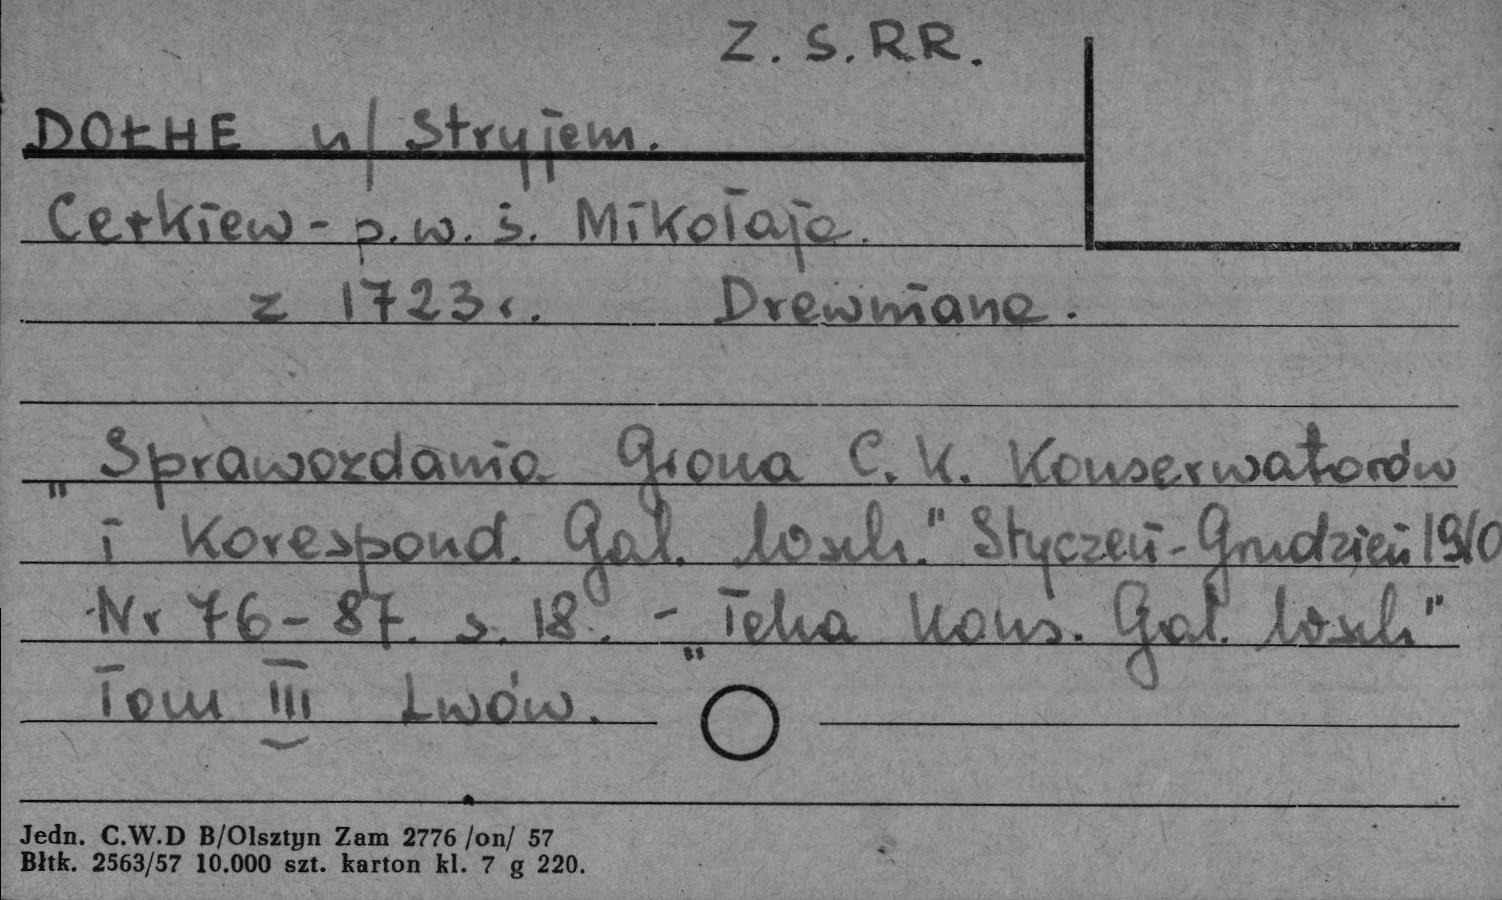 Z. S. R R.
DOŁHE n/ Stryjem.
Cerkiew - p. w. ś. Mikołaja.
z 1723 r. Drewniana.
"Sprawozdania Grona C. K. Konserwatorów
i Korespond. Gal. Wsch." Styczeń - Grudzień 1910
Nr 76 - 87. s. 18. - "Teka Kons. Gal. Wsch"
Tom III Lwów.
Jedn. C.W.D B/Olsztyn Zam 2776 /on/ 57
Błtk. 2563/57 10.000 szt. karton kl. 7 g 220.